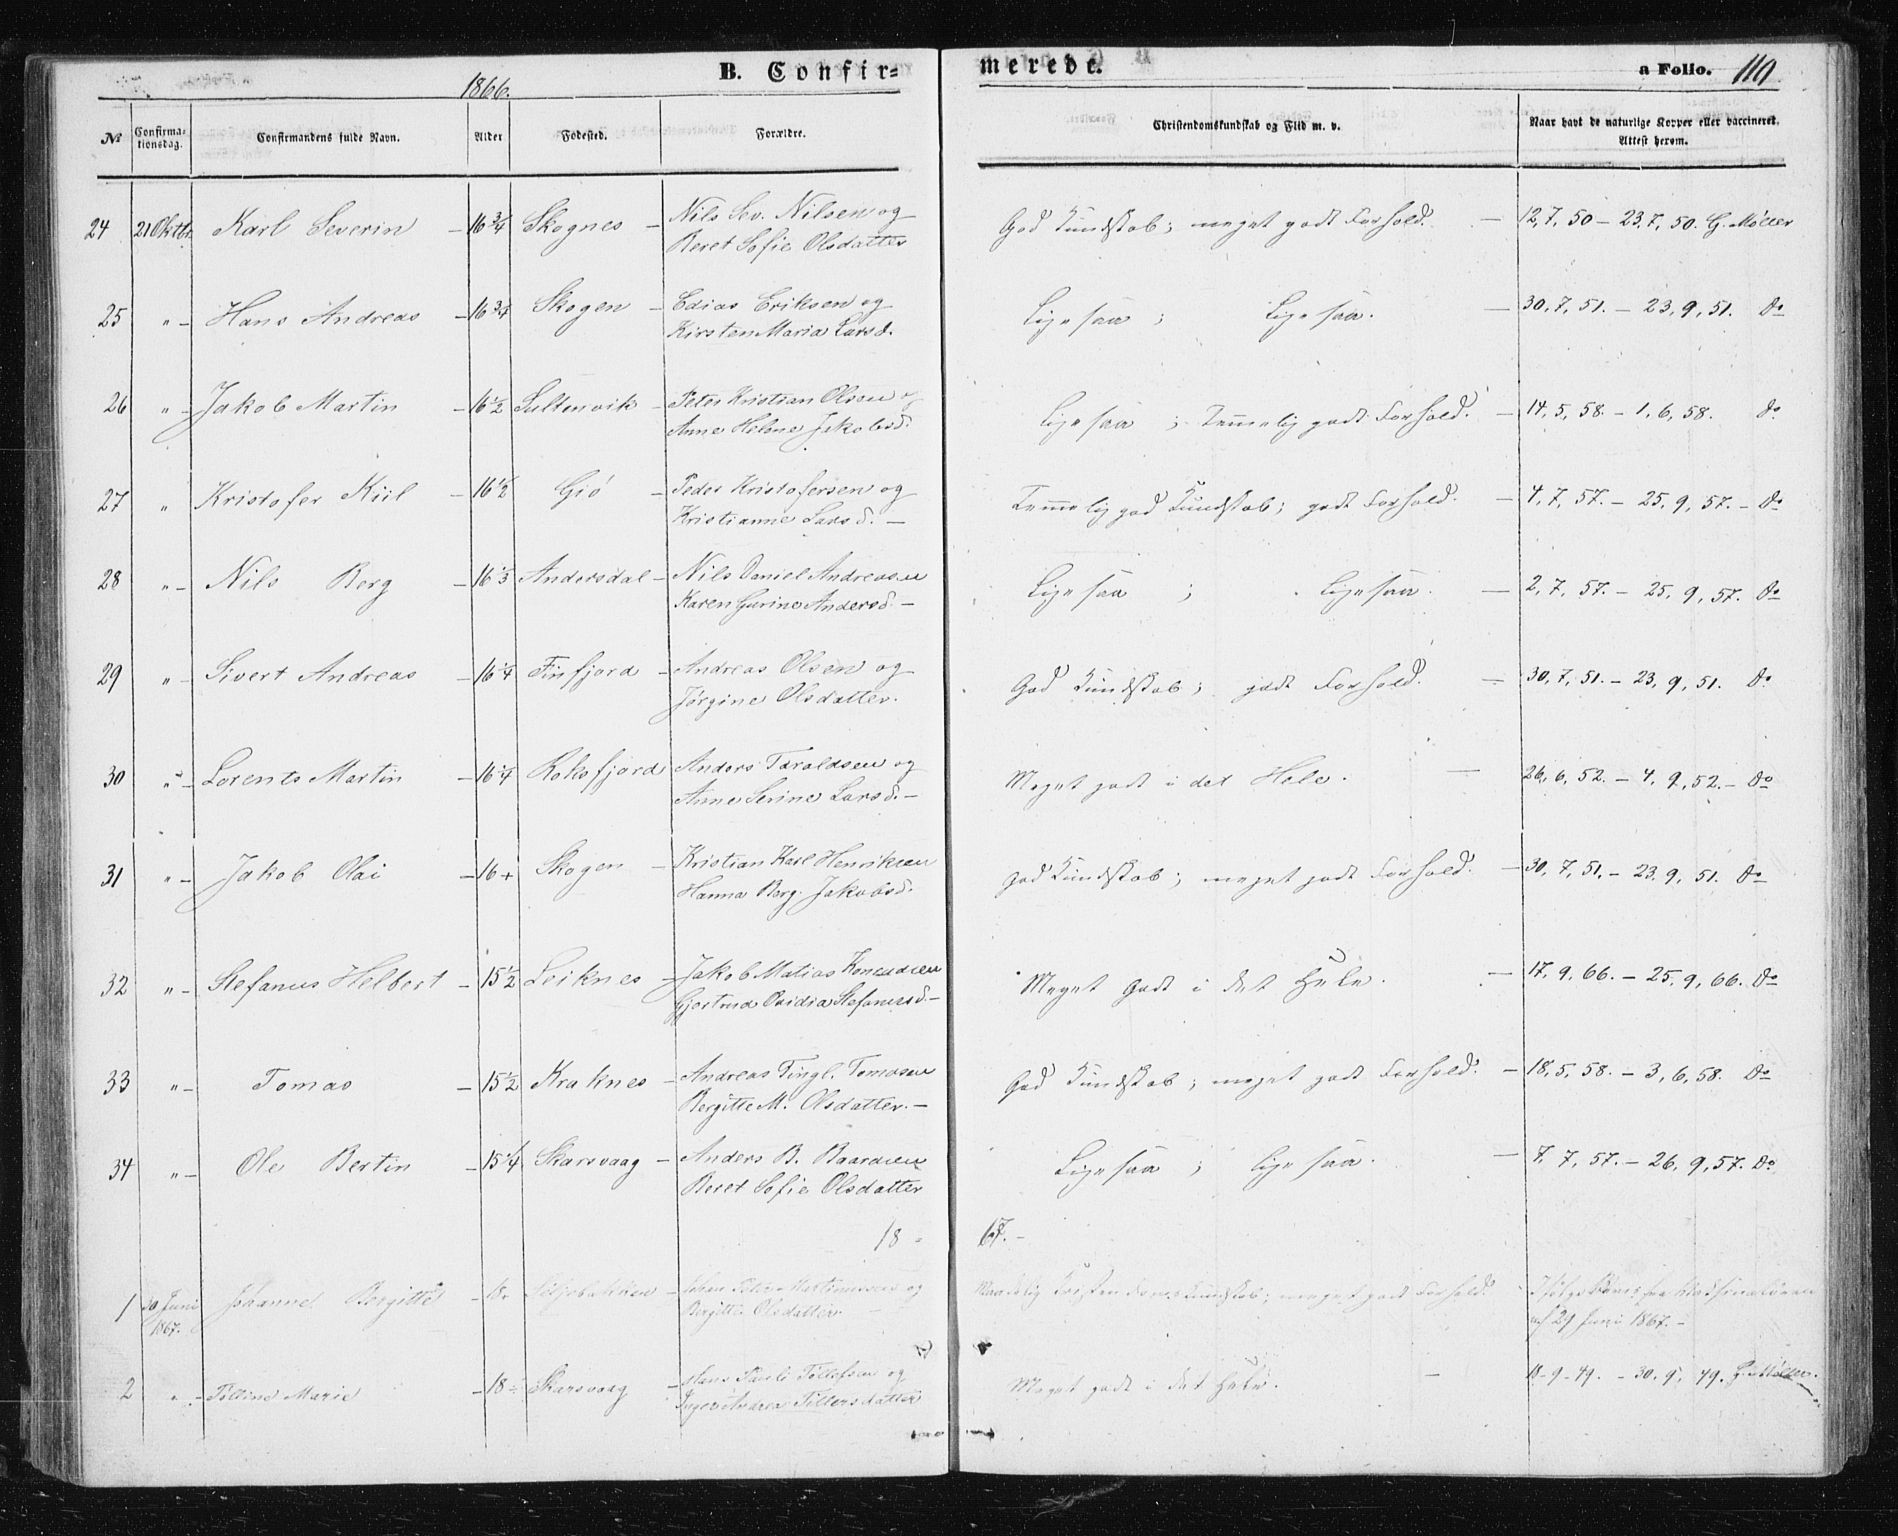 B. Confir=
merede.
a Folio. 119
1866.
№ Confirma-tionsdag. Confirmandens fulde Navn. Alder Fødested. Forældre. Christendomskundskab og Flid m. v. Naar havt de naturlige Kopper eller vaccineret. Attest herom.
24 21 Oktbr Karl Severin – 16 3/4 Skognes – Nils Sev. Nilsen og God Kundskab; meget godt Forhold. – 12,7,50 – 23,7,50. G. Møller
Beret Sofie Olsdatter
25 " – Hans Andreas – 16 3/4 Skogen – Edias Eriksen og Ligesaa ; Ligesaa. – 30,7,51. – 23,9,51. Do
Kirsten Maria Larsd.
26 " – Jakob Martin – 16 1/2 Sultenvik – Peter Kristian Olsen og Ligesaa ; Temmelig godt Forhold. – 14,5,58. – 1,6,58. Do
Anne Helene Jakobsd.
27 " Kristofer Kiil – 16 1/2 Giø – Peder Kristofersen og Temmelig god Kundskab; godt Forhold. – 4,7,57. – 25,9,57. – Do
Kristianne Larsd. –
28 " – Nils Berg – 16 1/3 Andersdal – Nils Daniel Andreasen Ligesaa ; Ligesaa. – 2,7,57. – 25,9,57. Do
Karen Gurine Andersd. –
29 " – Sivert Andreas – 16 1/4 Finfjord – Andreas Olsen og God Kundskab; godt Forhold. – 30,7,51. – 23,9,51. Do
Jørgine Olsdatter.
30 " – Lorents Martin – 16 1/4 Roksfjord Anders Taraldsen og Meget godt i det Hele. – 26,6,52. – 4,9,52. – Do
Anne Serine Larsd. –
31 " – Jakob Olai – 16 + Skogen – Kristian Karl Henriksen God Kundskab; meget godt Forhold. – 30,7,51. – 23,9,51. Do
Hanna Berg. Jakobsd.
32 " – Stefanus Helbert – 15 1/2 Leiknes – Jakob Matias Konradsen Meget Godt i det Hele. – 17,9,66. – 25,9,66. Do
Gjertrud Ovidia Stefanusd. –
33 " – Tomas – 15 1/2 Kraknes – Andreas Tingl. Tomasen God Kundskab; meget godt Forhold. – 18,5,58. – 3,6,58. Do
Bergitte M. Olsdatter. –
34 " – Ole Bertin – 15 1/4 Skarsvaag – Anders B. Baardsen Ligesaa ; Ligesaa. – 7,7,57. – 26,9,57. Do
Beret Sofie Olsdatter
18 - 67. –
1 30 Juni Johanne Bergitte – 18 Seljebakken – Johan Peter Martinussen og Maadelig Kristendomskundskab; meget godt Forhold.
1867. Bergitte Olsdatter – af 29 Juni 1867. –
2 " – Tilline Marie – 18 Skarsvaag – Hans Pauli Tollefsen og Meget godt i det Hele. – 18-9-49. – 30.9.49. G. Møller.
Inger Andrea Tillersdatter